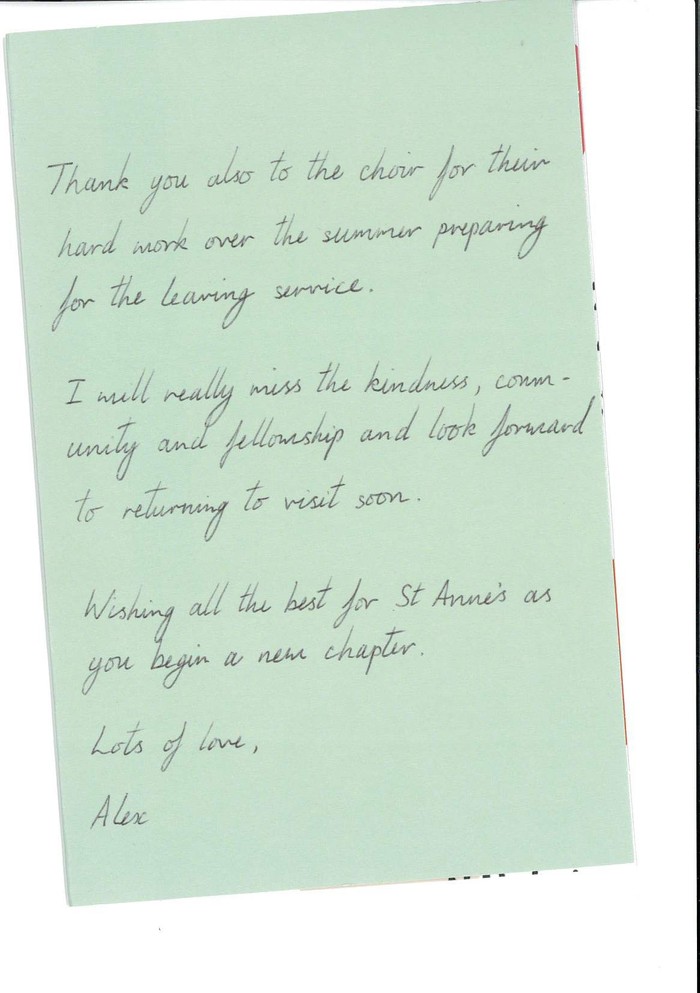 Thank you also to the choir for their
hard work over the summer preparing
for the leaving service.
I will really miss the kindness, comm-
unity and fellowship and look forward
to returning to visit soon.
Wishing all the best for St Anne's as
you begin a new chapter.
Lots of love,
Alex